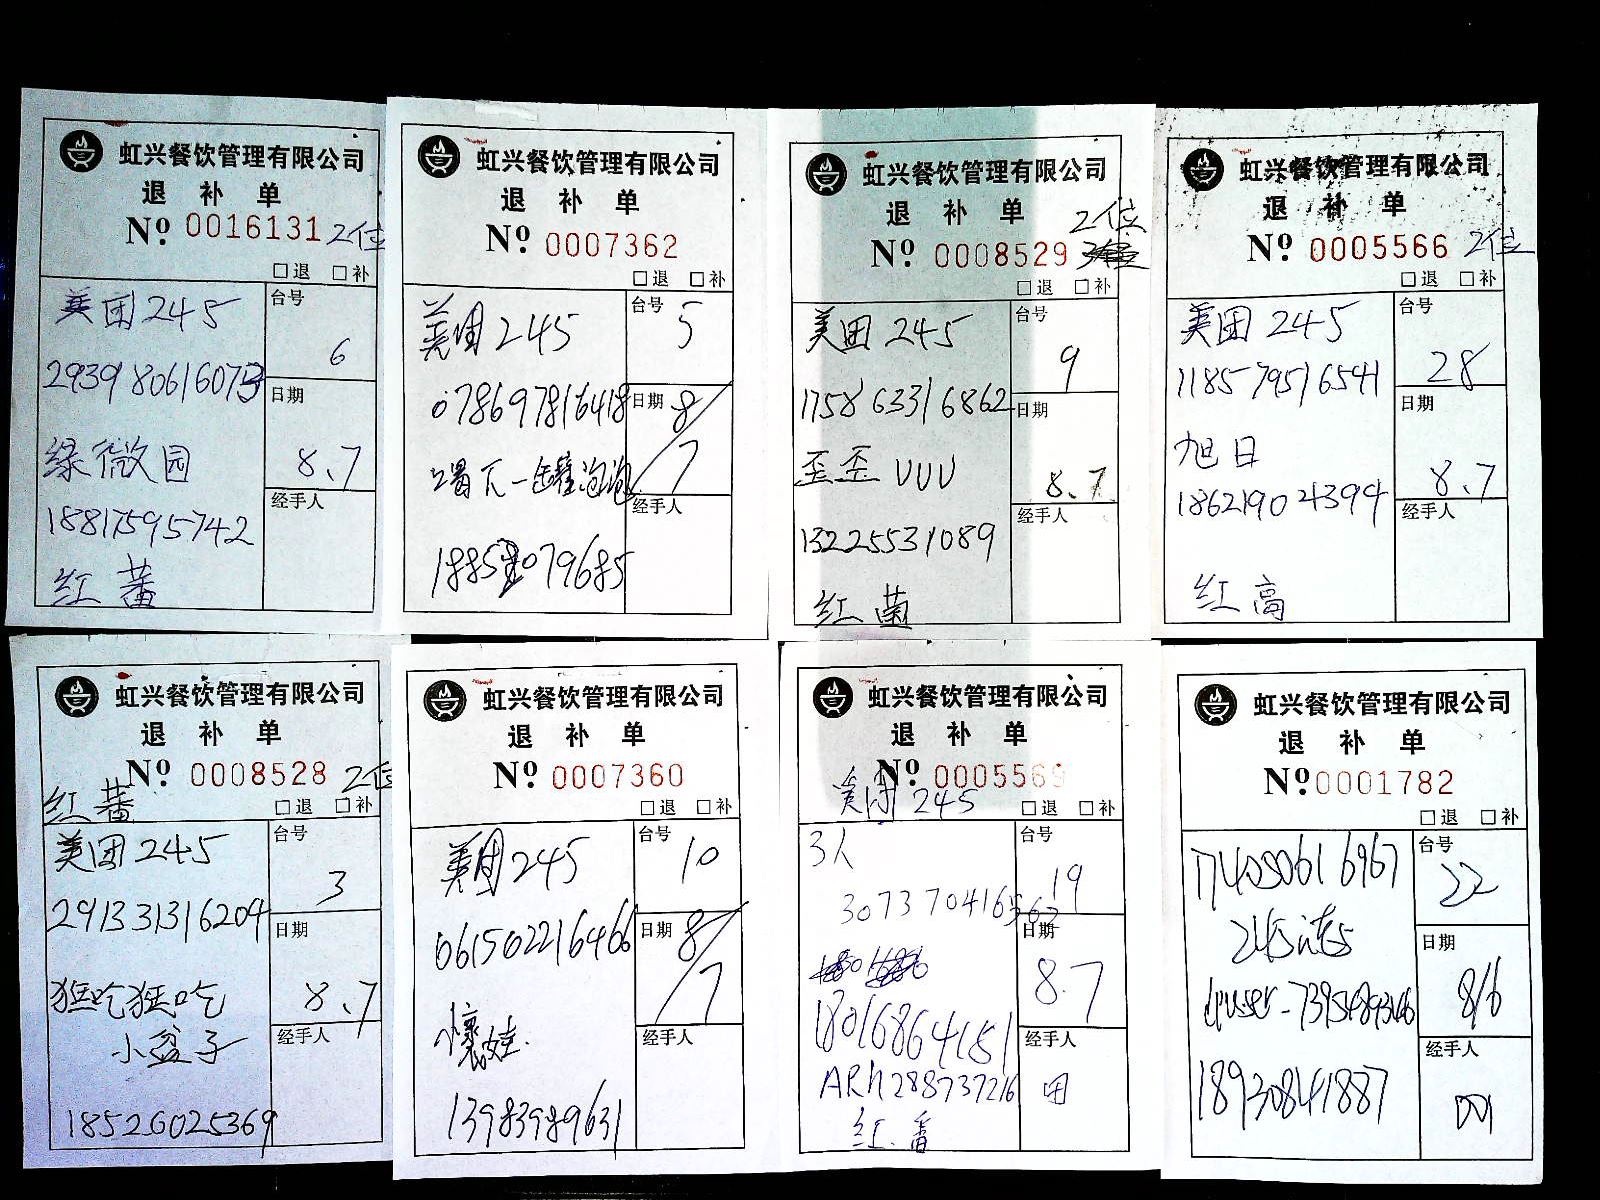 虹兴餐饮管理有限公司
退 补 单
Nº 0016131 2位
□退 □补
美团245
台号
6
293980616073
日期
绿微园
8.7
经手人
18817595742
红蕃
虹兴餐饮管理有限公司
退 补 单
Nº 0007362
□退 □补
美团245
台号
5
078697816418
日期
8/7
喝下一罐泡泡
经手人
079685
虹兴餐饮管理有限公司
退 补 单
2位
Nº 0008529
□退 □补
美团245
台号
9
175863316862
日期
歪歪VVV
8.7
经手人
13225531089
红菌
虹兴餐饮管理有限公司
退 补 单
Nº 0005566 2位
□退 □补
美团245
台号
28
118579516541
日期
旭日
8.7
186219024394
经手人
红高
虹兴餐饮管理有限公司
退 补 单
Nº 0008528 2位
红蕃
□退 □补
美团245
台号
3
291331316204
日期
狂吃狂吃
8.7
小盆子
经手人
18526025369
虹兴餐饮管理有限公司
退 补 单
Nº 0007360
□退 □补
美团245
台号
10
061502216466
日期
8/7
娃.
经手人
13983989631
虹兴餐饮管理有限公司
退 补 单
Nº 0005569
美团245
□退 □补
3人
台号
19
307370416567
日期
8.7
18016864151
经手人
ARh288737216
田
红.番
虹兴餐饮管理有限公司
退 补 单
Nº 0001782
□退 □补
174050616967
台号
22
245
日期
8/6
经手人
18930841887